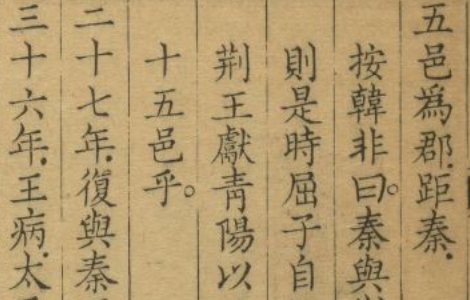 五邑為郡.距秦.
按韓非曰。秦與
則是時屈子自
荆王獻青陽以
十五邑乎。
二十七年.復與秦
三十六年.王病.太